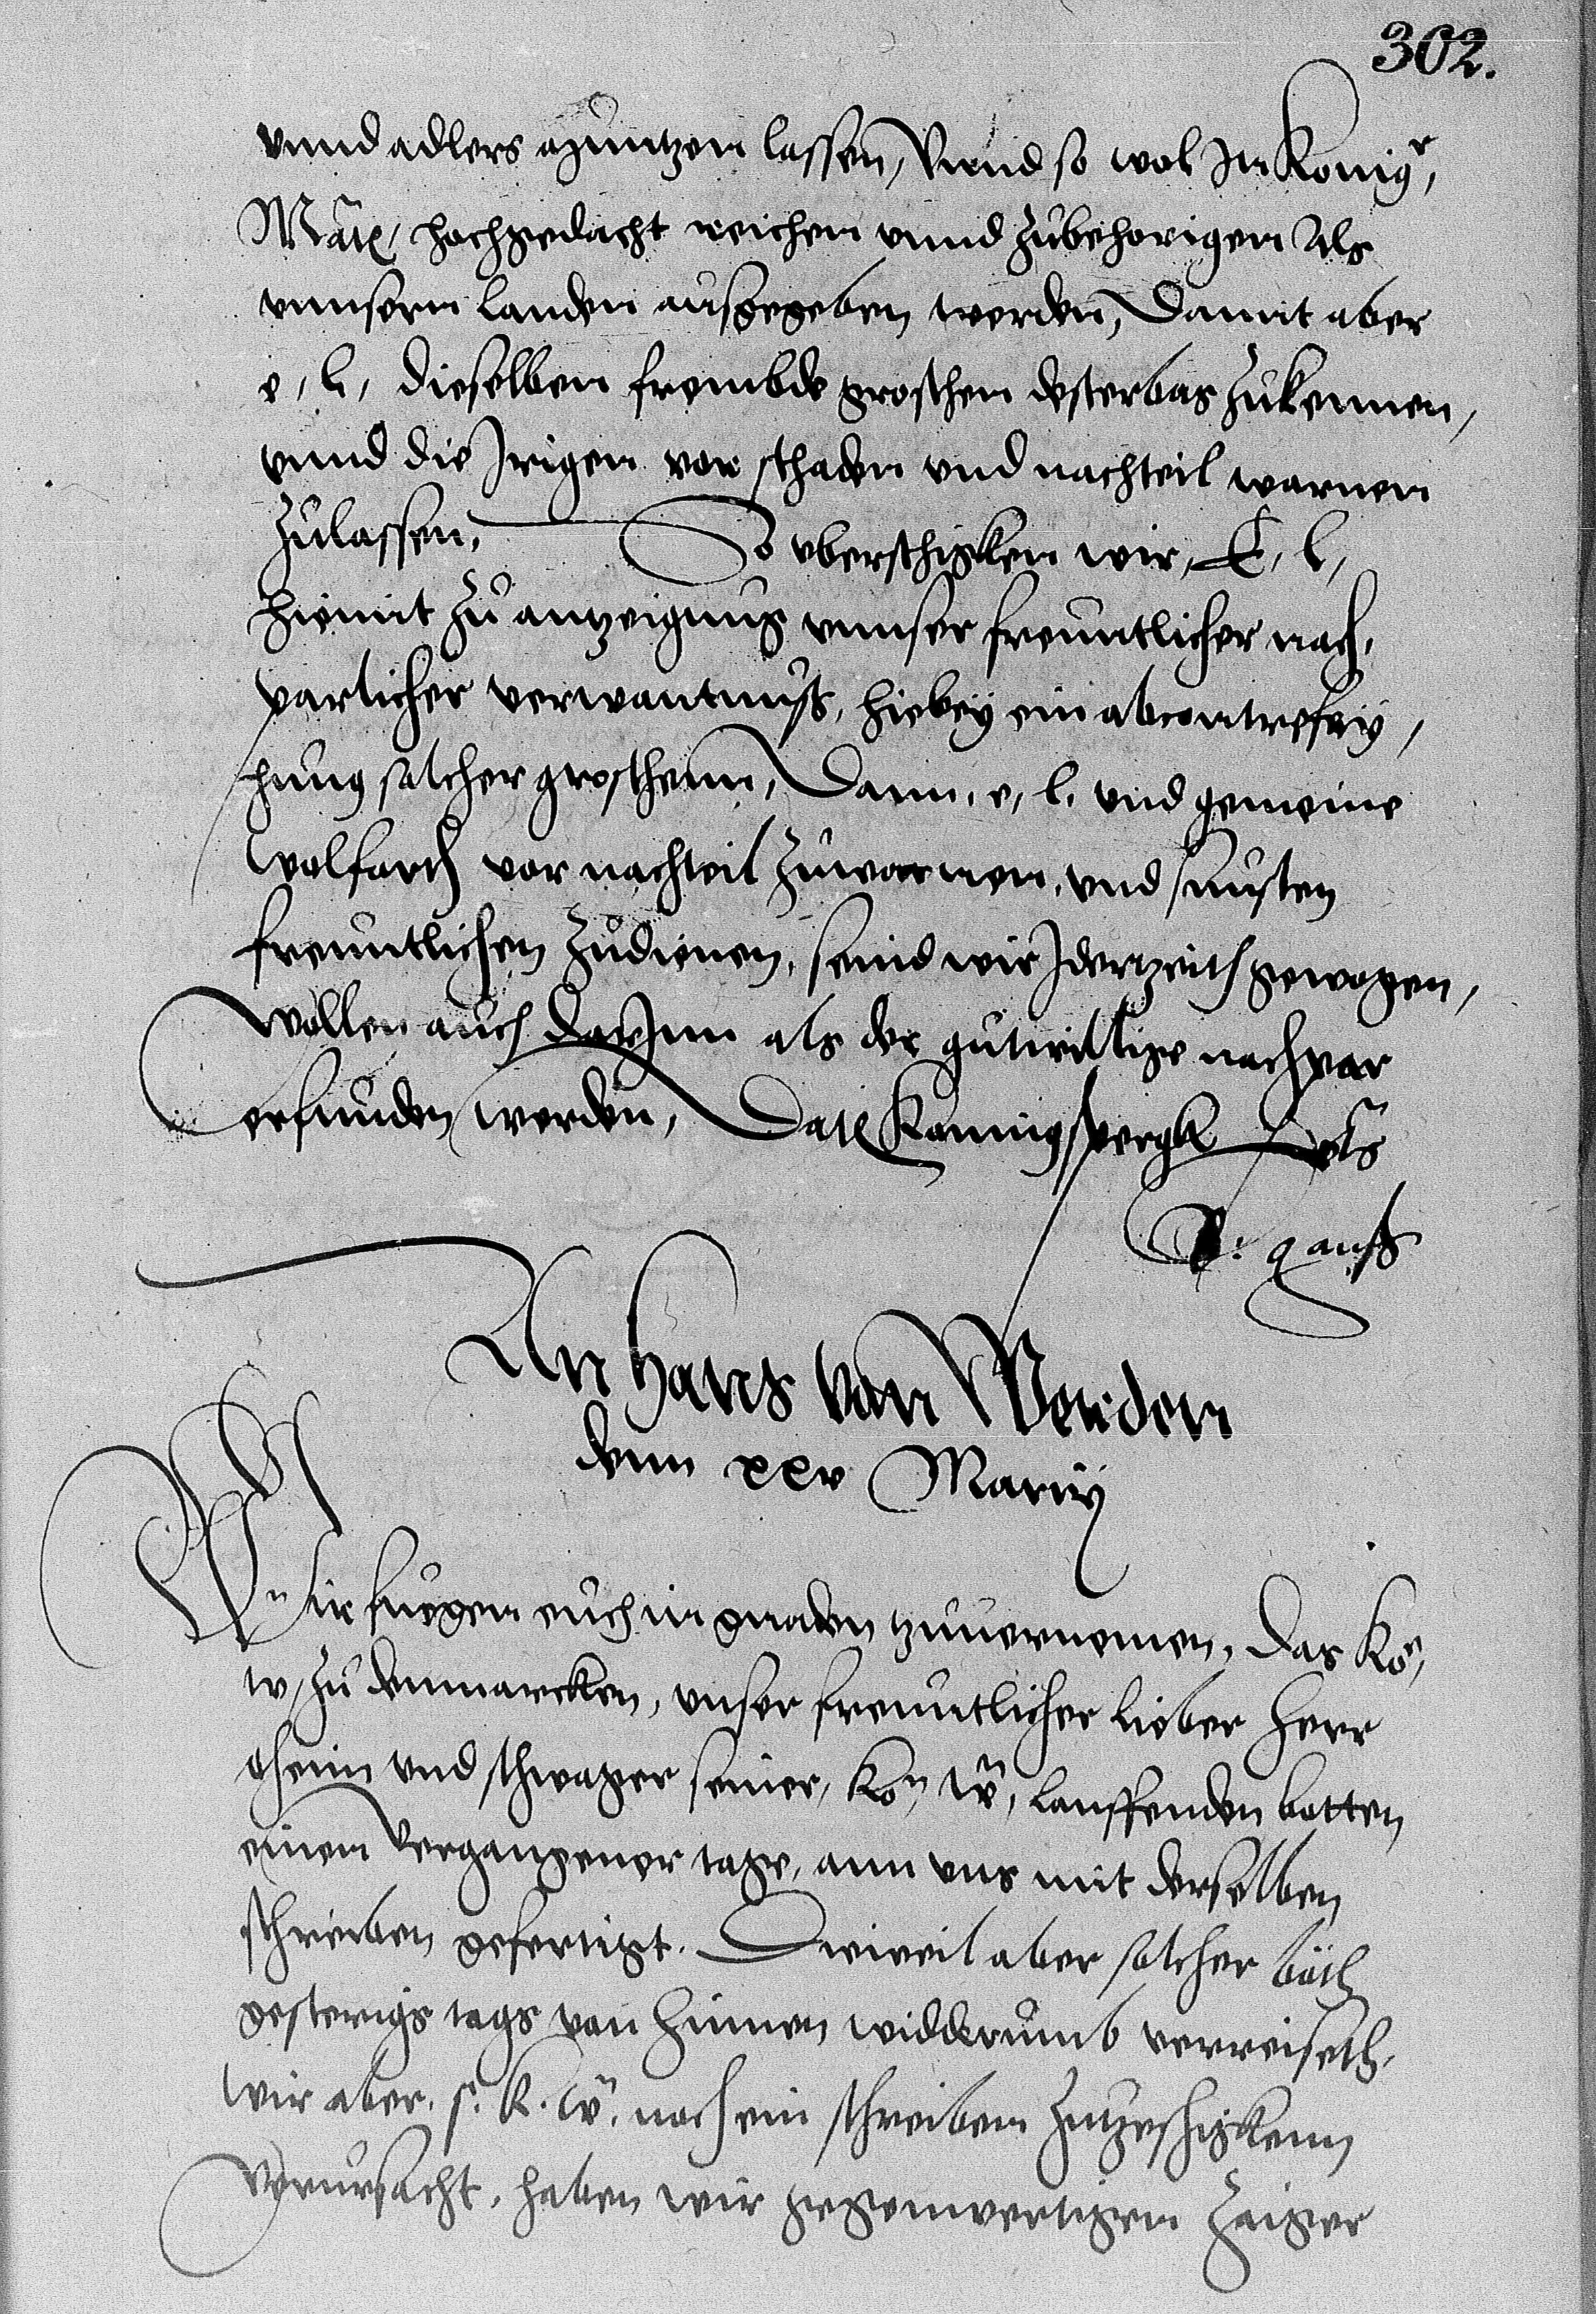 302.
vnnd adlers muntzen lassen, Vnnd so wol In Konigr,
Matt, hochgedacht reichen vnnd zubehorigen Als
vnnsern landen ausgegeben werden, Damit aber
e, l, dieselben frembde groschen desterbas zukennen,
vnnd die Irigen vor schaden vnd nachteil warnen
zulassen, So vberschigken wir, E, l,
hiemit zu antzeigung vnnser freuntlicher nach,
parlicher verwantnuss, hiebey ein abcontrefey,
hung solcher groschenn, Dann, e, l, vnd gemeine
wolfarth vor nachteil zuwarnen, vnd sunsten
freuntlichen zudienen, seind wir Iderzeith gewogen,
Wollen auch darInn als der gutwillige nachpar
erfunden werden, Datt Konnigspergk
An Hans von Werden
denn xxv Marcij
Wir fuegen euch in gnaden zuuernemen, das Ko,
w, zu denmarcken, vnser freuntlicher lieber Herr
oheim vnd schwager seiner, Kon, W, lauffenden botten
einen Vergangener tage, ann vns mit derselben
schreiben gefertigt. Dieweil aber solcher both
gesterigs tags von hinnen widderumb verreiseth,
Wir aber, s. k. W, noch ein schreiben zutzeschigkenn
Verursacht, haben wir gegenwertigen Zaiger